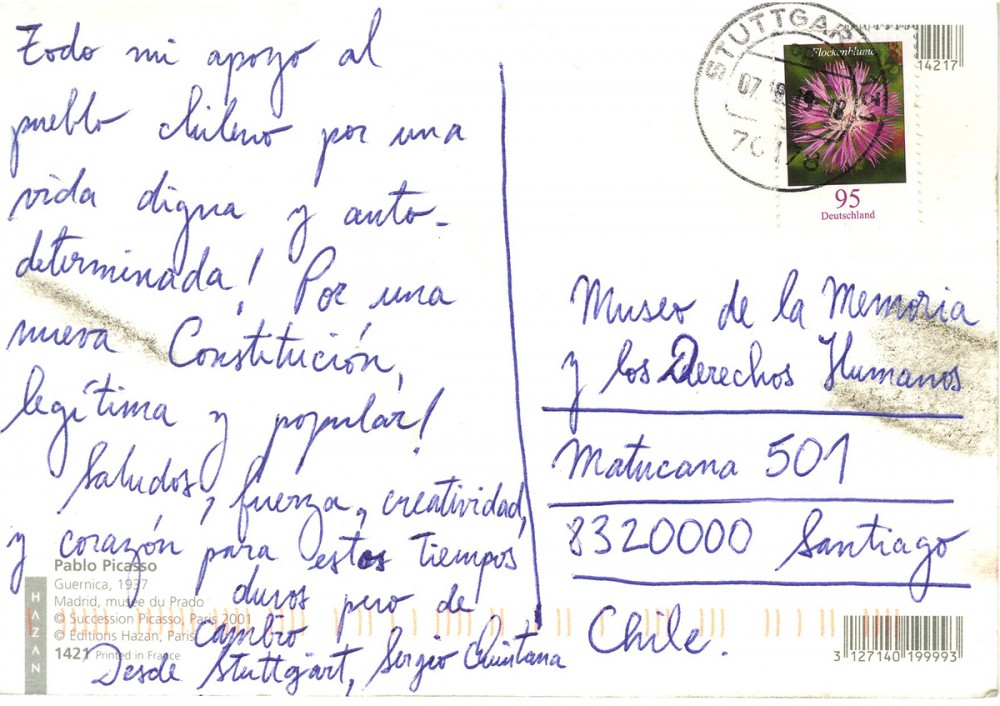 Todo mi apoyo al
pueblo chileno por una
vida digna y auto-
determinada! Por una
nueva Constitución,
legítima y popular!
Saludos, fuerza, creatividad,
y corazón para estos tiempos
duros pero de
cambio
Desde Stuttgart, Sergio Quintana
Pablo Picasso
Guernica, 1937
Madrid, musée du Prado
© Succession Picasso, Paris 2001
© Editions Hazan, Paris
1421 Printed in France
HAZAN
STUTTGAR
70178
Flockenblume
95
Deutschland
14217
Museo de la Memoria
y los Derechos Humanos
Matucana 501
8320000 Santiago
Chile.
3 127140 199993